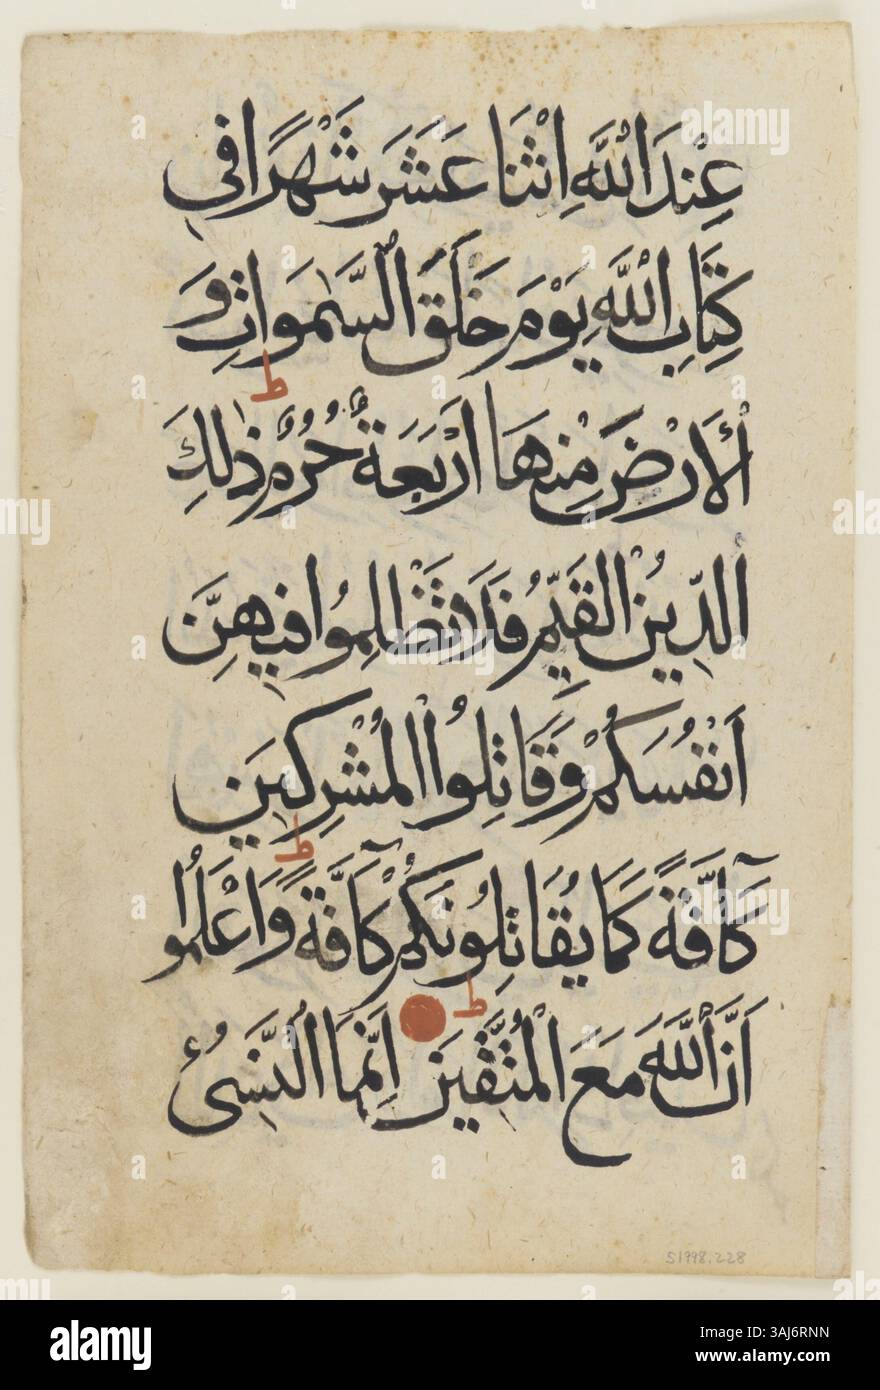 عِنْدَ اللّٰهِ اثْنَا عَشَرَ شَهْرًا فِي
كِتَابِ اللّٰهِ يَوْمَ خَلَقَ السَّمٰوَاتِ وَ
ط
الْأَرْضَ مِنْهَا أَرْبَعَةٌ حُرُمٌ ذٰلِكَ
الدِّينُ الْقَيِّمُ فَلَا تَظْلِمُوا فِيهِنَّ
أَنْفُسَكُمْ وَقَاتِلُوا الْمُشْرِكِينَ
ط
كَآفَّةً كَمَا يُقَاتِلُونَكُمْ كَآفَّةً وَاعْلَمُوا
ط
أَنَّ اللّٰهَ مَعَ الْمُتَّقِينَ إِنَّمَا النَّسِيءُ
S1998.228
alamy
Image ID: 3AJ6RNN
www.alamy.com